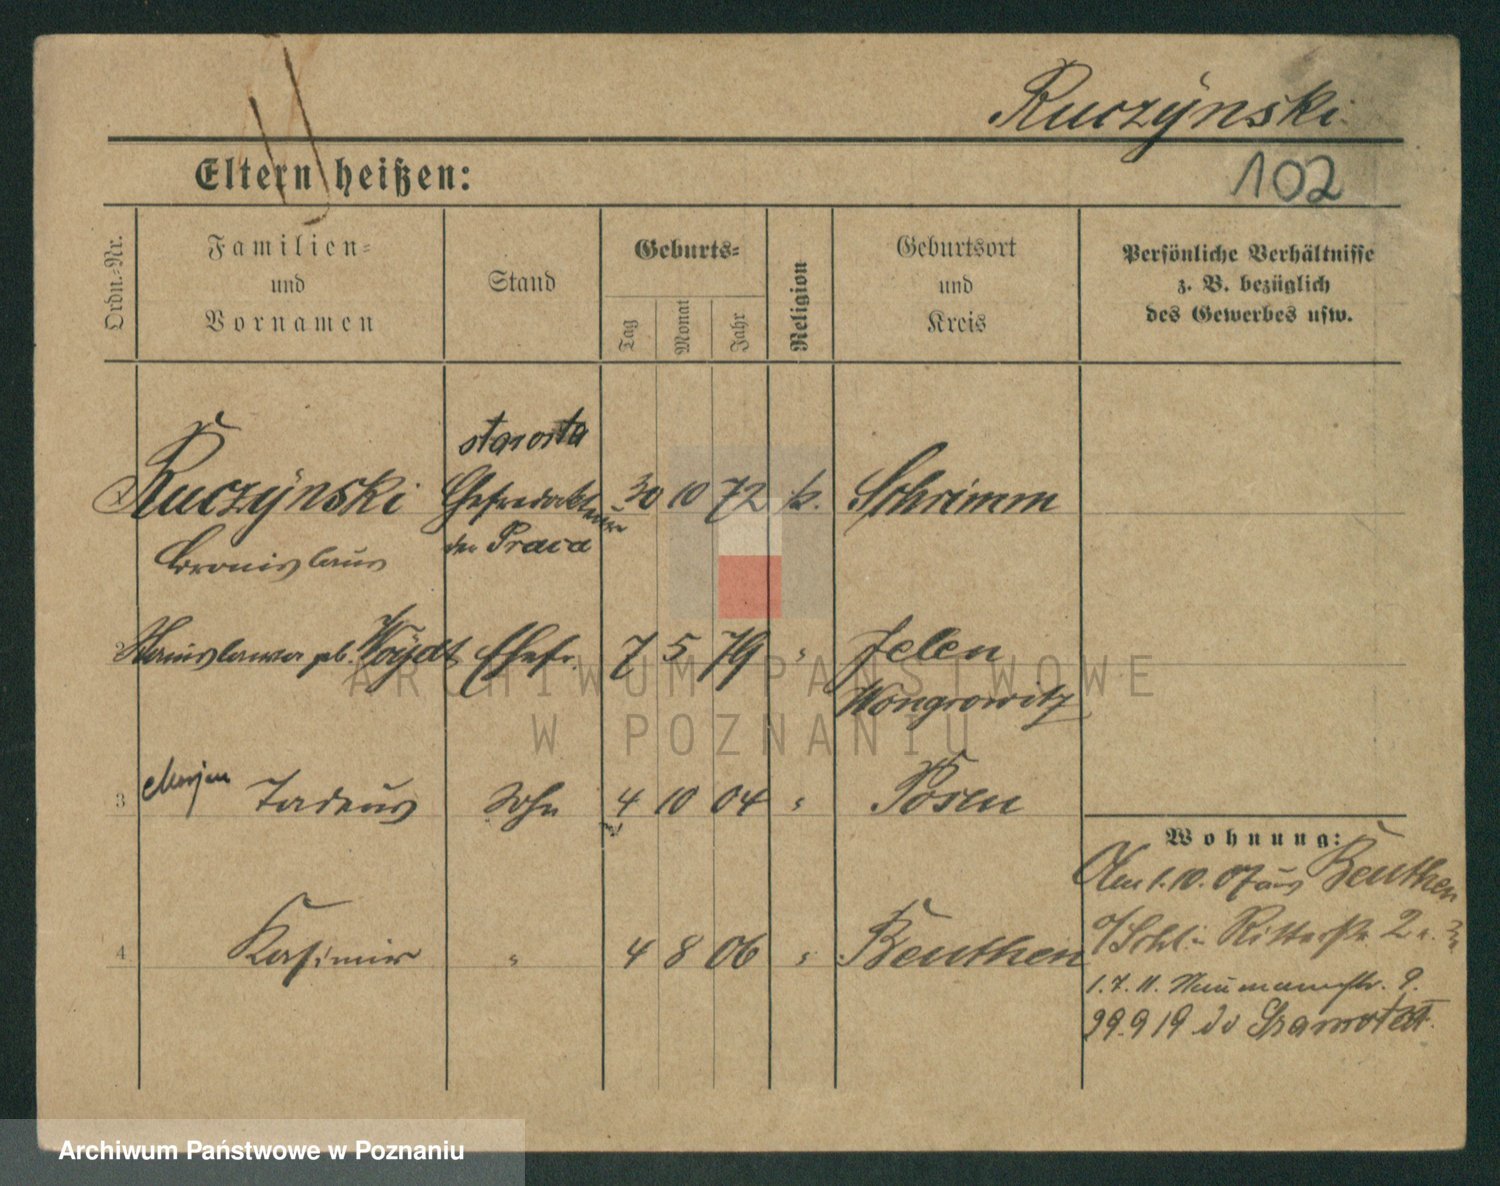 Kuczÿnski
Eltern heißen:
102
Ordn.-Nr.
Familien-
und
Vornamen
Stand
Geburts-
Tag
Monat
Jahr
Religion
Geburtsort
und
Kreis
Persönliche Verhältnisse
z. B. bezüglich
des Gewerbes usw.
starosta
Kuczÿnski Chefredakteur 30 10 72 k. Schrimm
Bronislaus der Praca
2 Stanislawa geb. Woÿdt Ehefr. 7 5 79 " Jelen
Wongrowitz
3 Marjan Tadeus Sohn 4 10 04 " Posen
Wohnung:
Am 1.10.07 aus Beuthen
4 Kasimir " 4 8 06 " Beuthen
O/Schl. Ritterstr. 2
1.7.11. Neumannstr. 9.
29.9 19 do Szamotuł.
ARCHIWUM PAŃSTWOWE
W POZNANIU
Archiwum Państwowe w Poznaniu